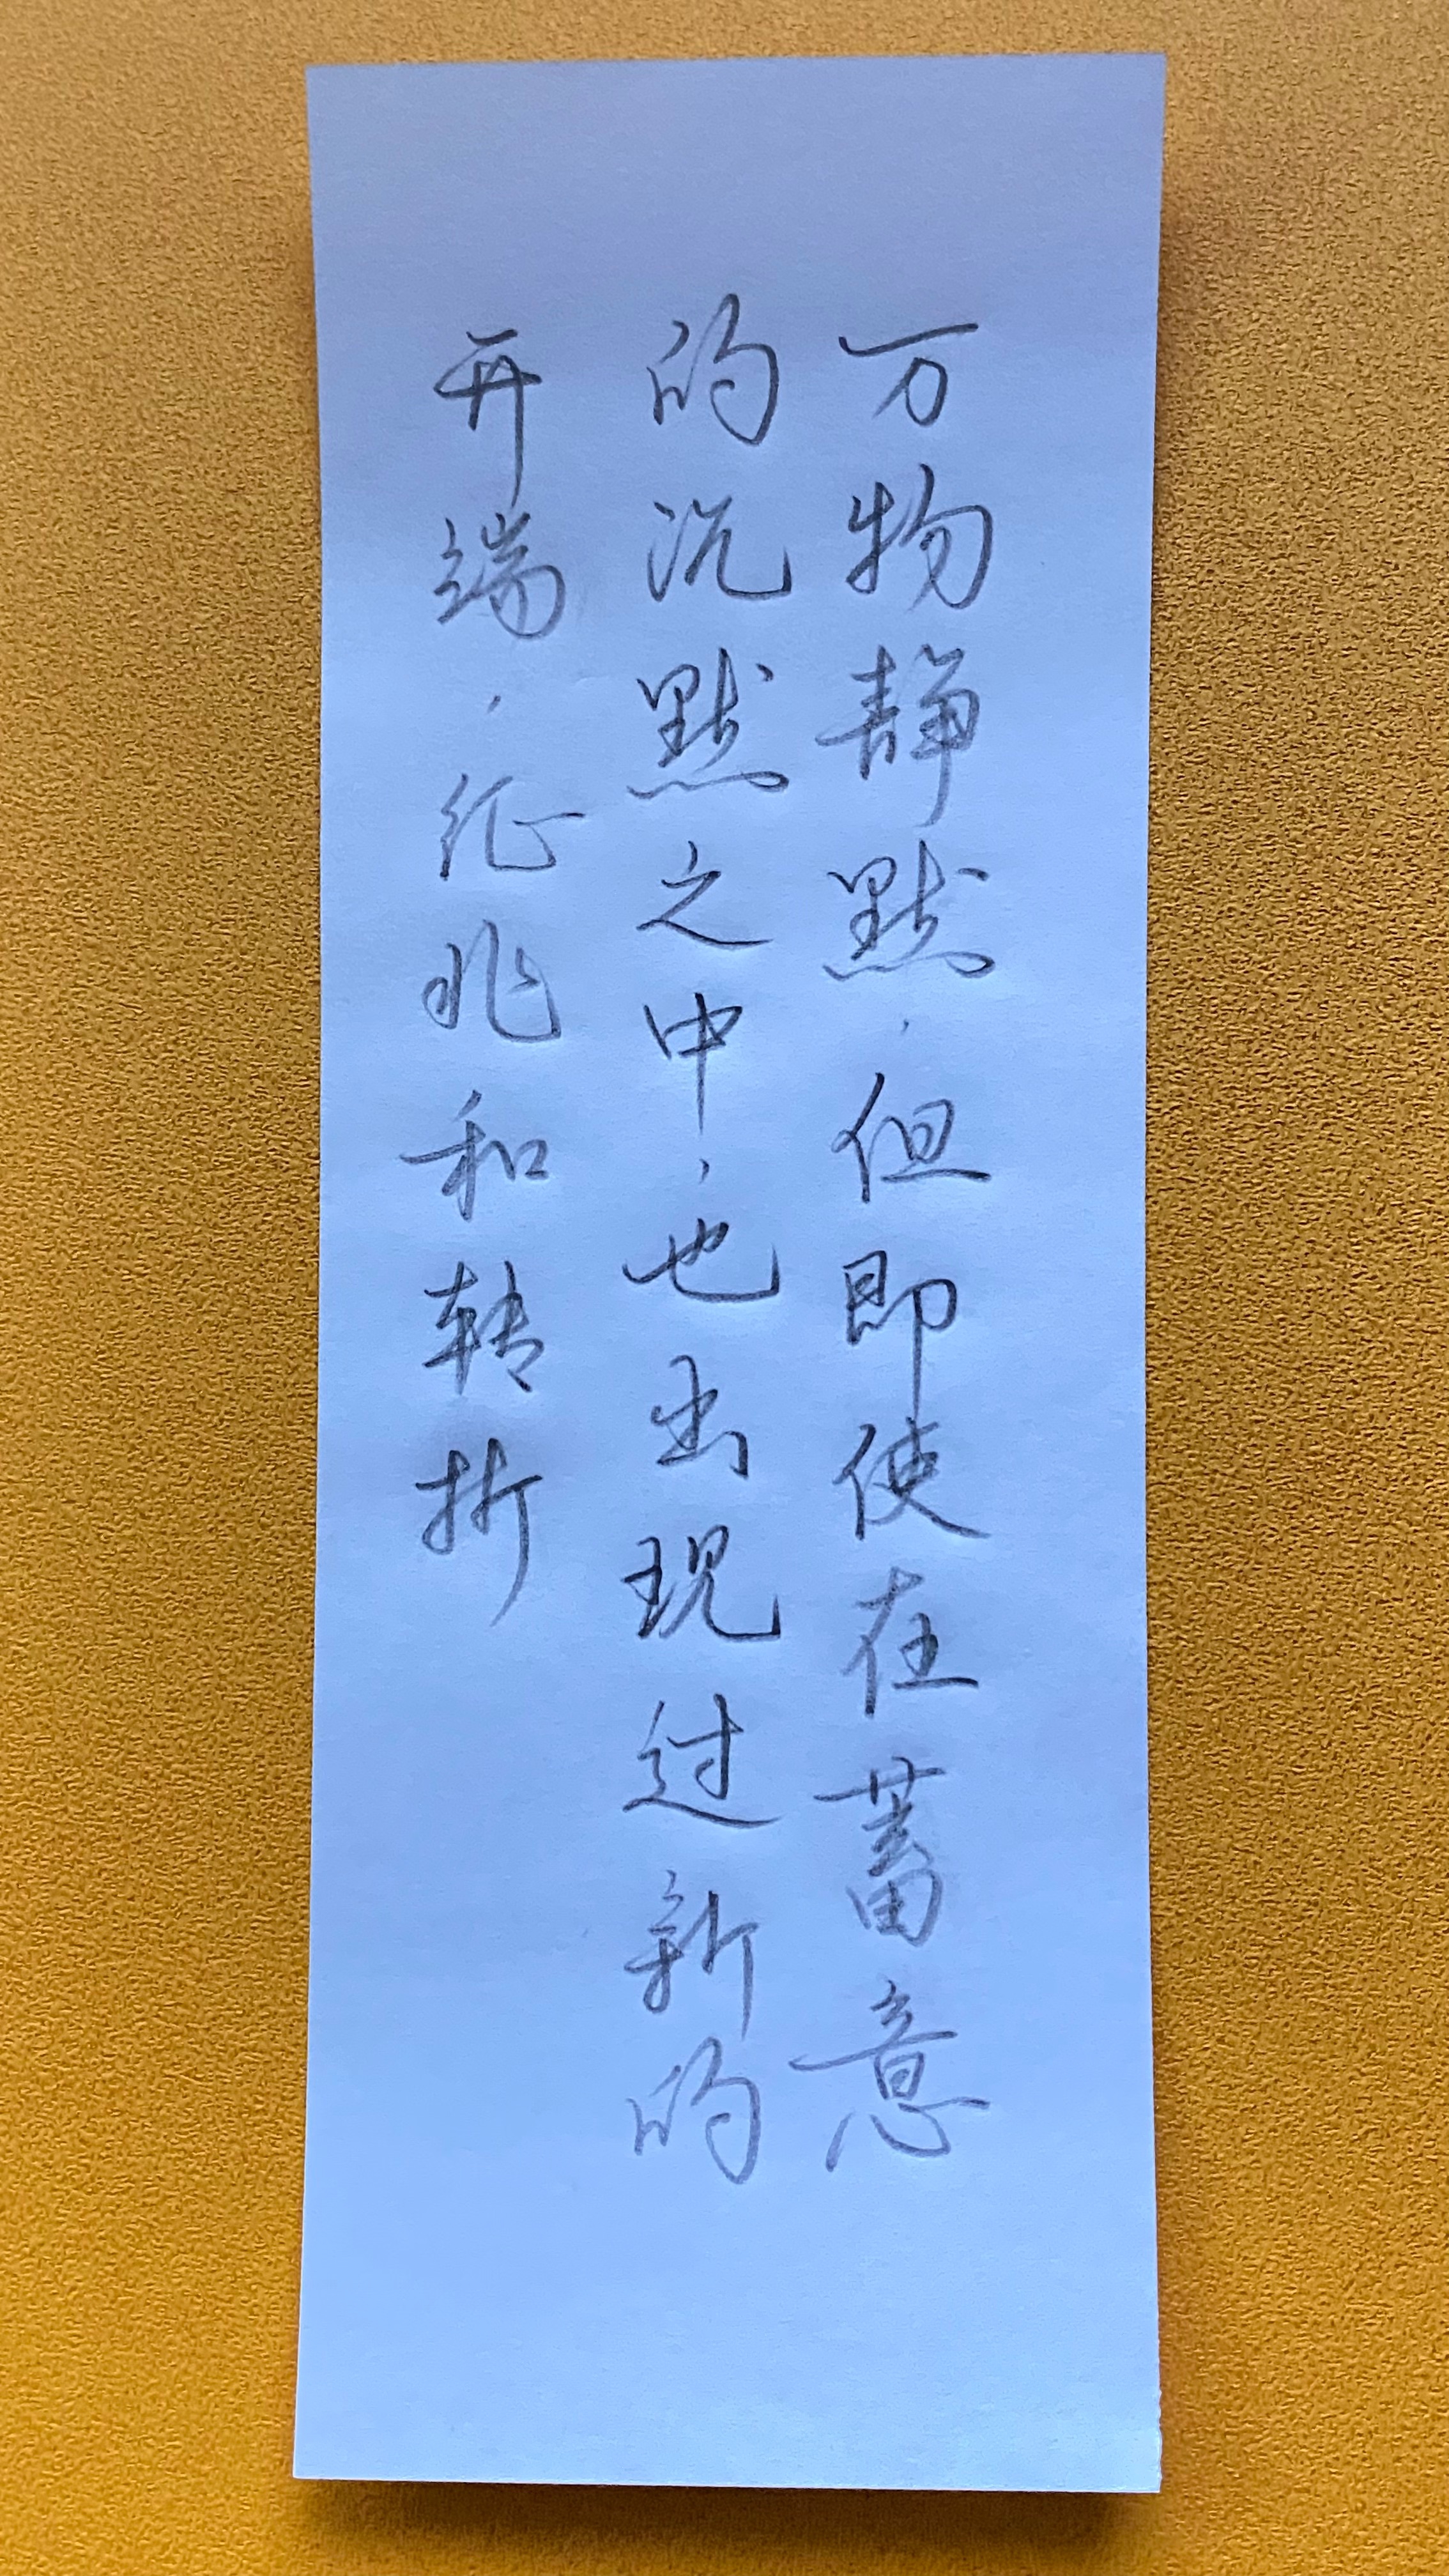 万物静默，但即使在蓄意
的沉默之中，也出现过新的
开端，征兆和转折